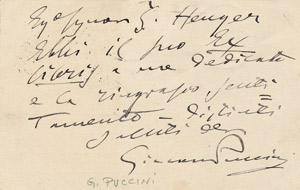 Egr Signor J. Henger
Ebbi il suo Ex
libris a me dedicato
e la ringrazio senti
tamente — distinti
saluti da
Giacomo Puccini
G. PUCCINI